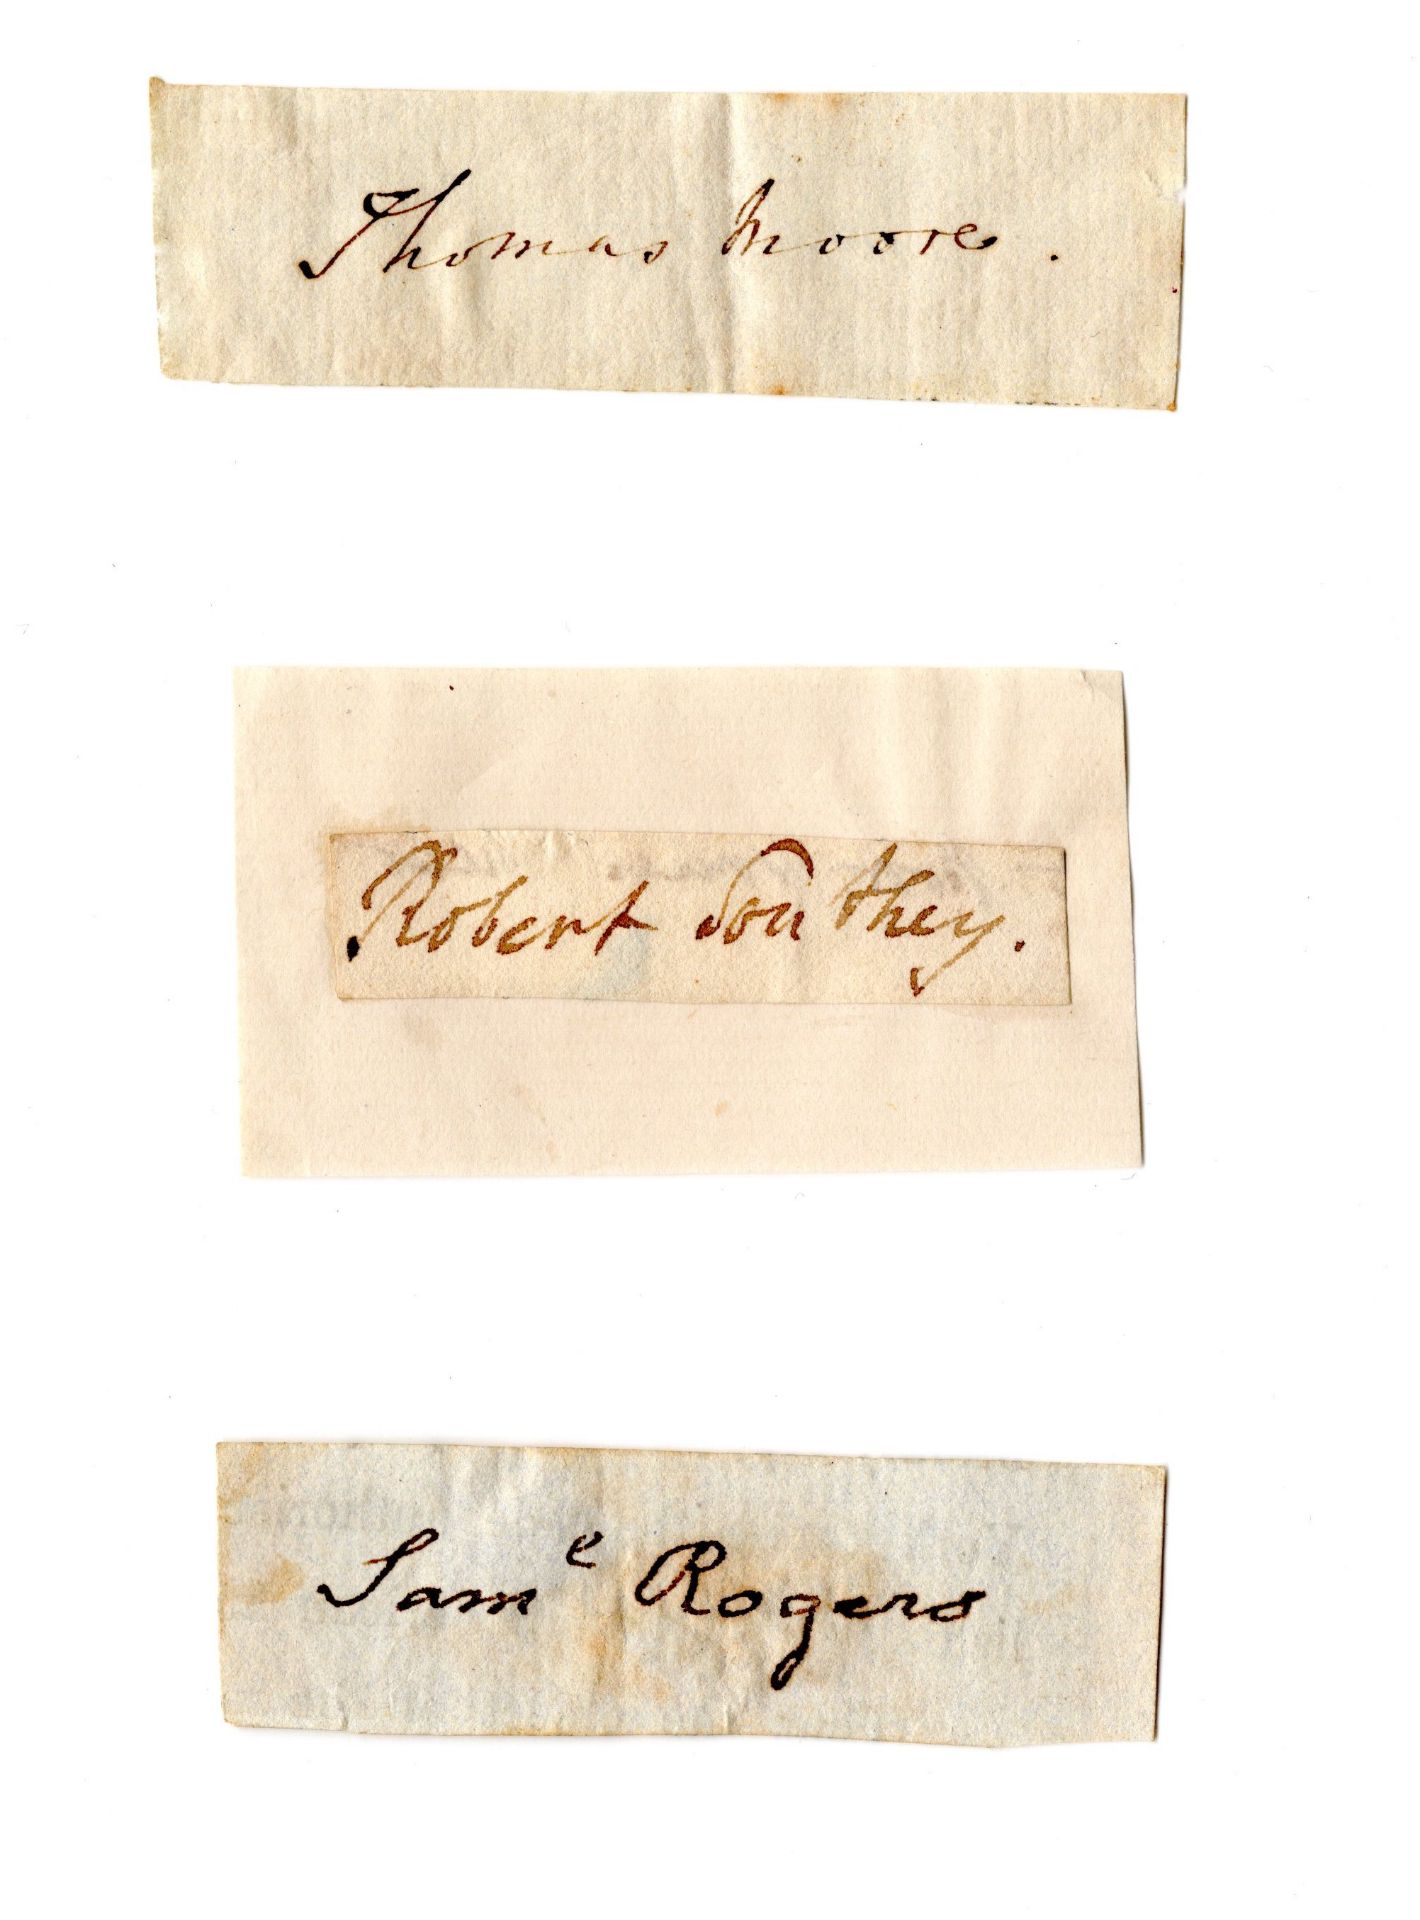 Thomas Moore.
Robert Southey.
Sam^l Rogers